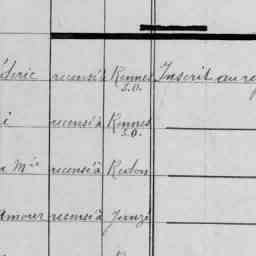 déric recensé à Rennes Inscrit au re
S.O.
i recensé à Rennes
S.O.
a Mie recensé à Redon
amour recensé à Janzé